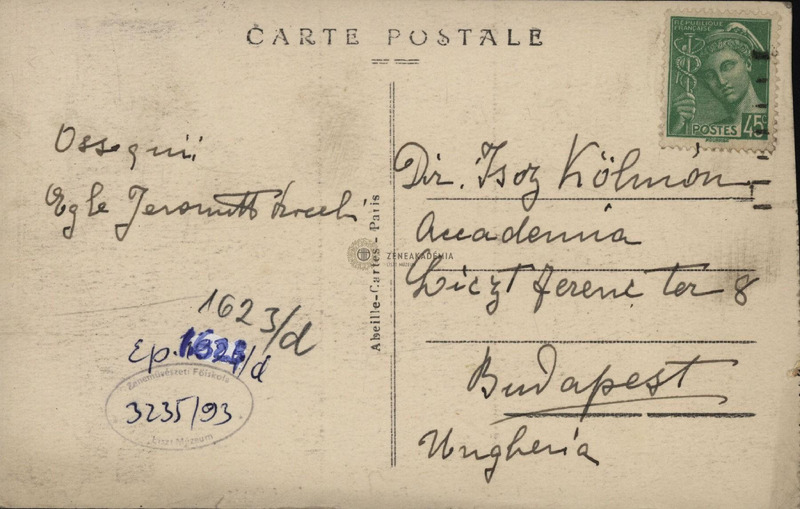 CARTE POSTALE
RÉPUBLIQUE
FRANÇAISE
45c
POSTES
Ossequii
Egle
Dir. Isoz Kálmán
Accademia
Liszt ferenc ter 8
Budapest
Ungheria
Abeille-Cartes - Paris
ZENEAKADÉMIA
1623/d
Ep. 1623/d
Zeneművészeti Főiskola
3235/93
Liszt Múzeum